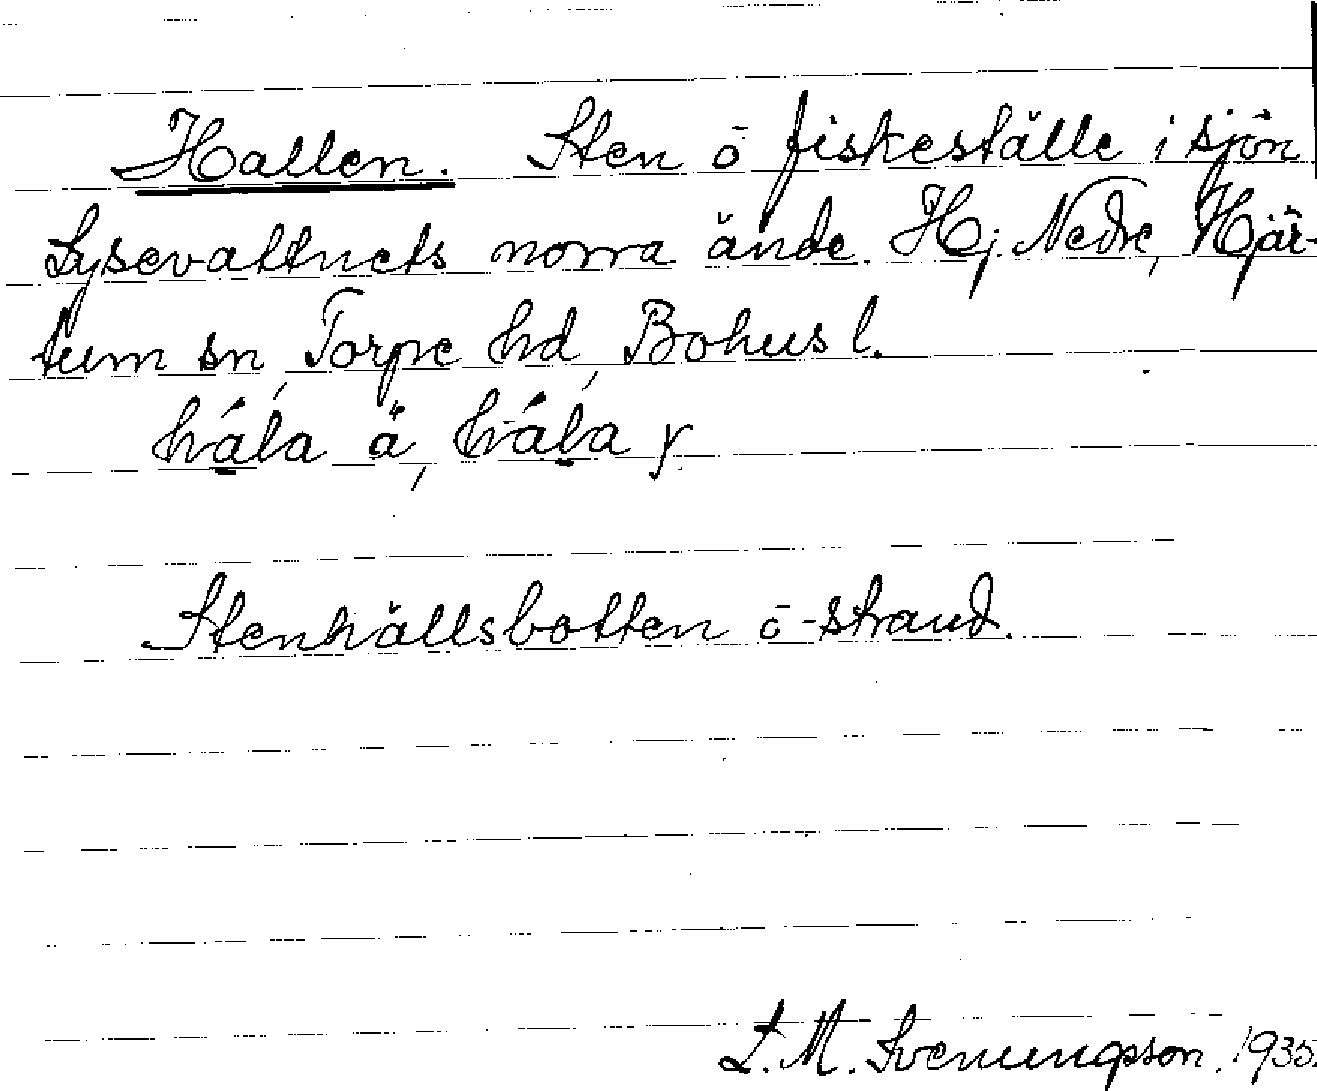 Hallen. Sten ō fiskeställe i sjön
Lysevattnets norra ände. Hj. Nedre, Hjär-
tum sn, Torpe hd, Bohus l.
Stenhällsbotten ō -strand.
L. M. Svenungsson. 1935.